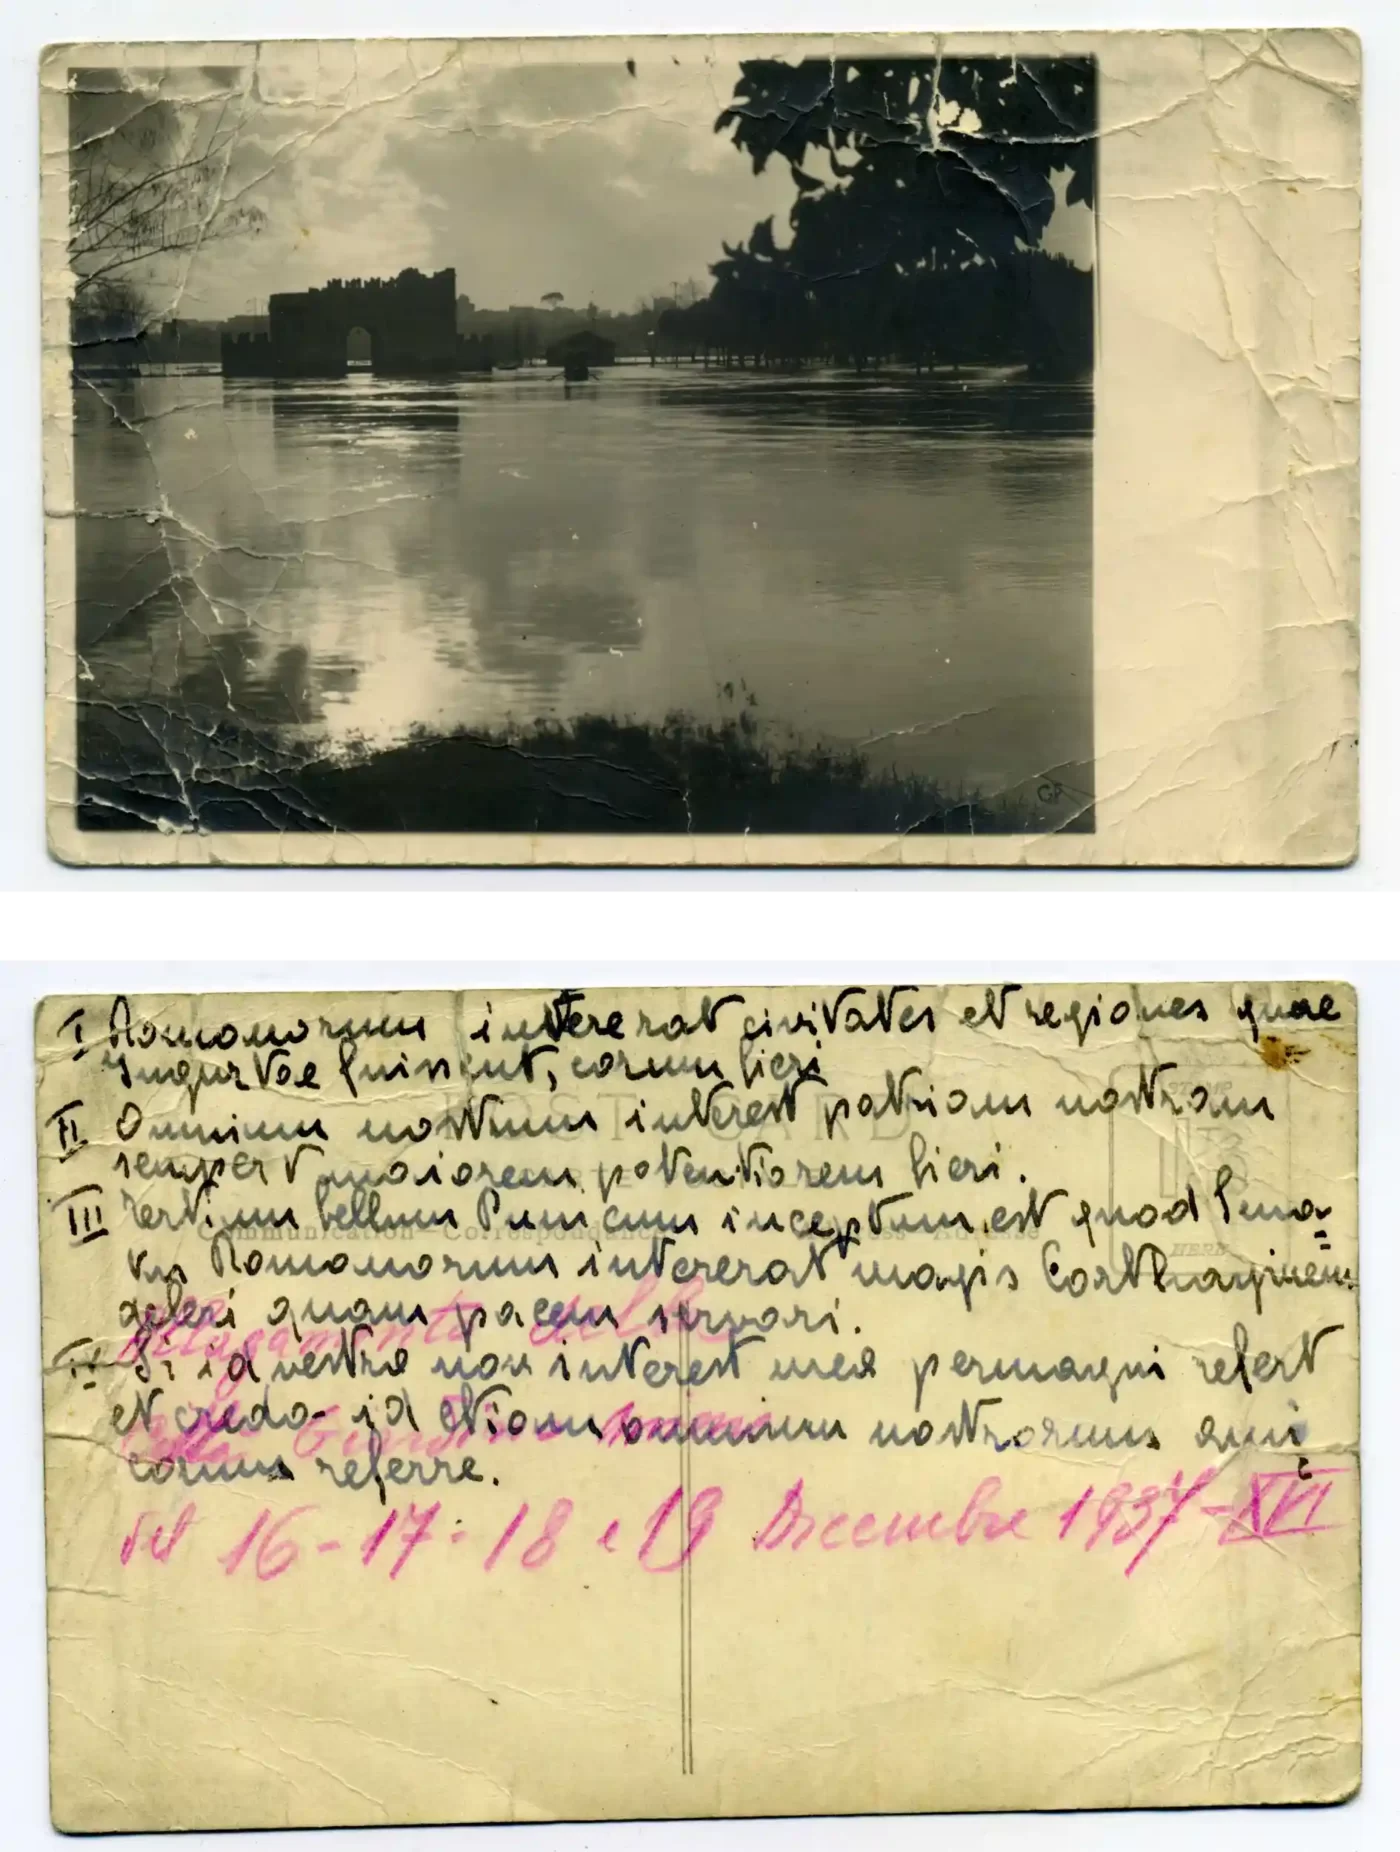 GP
I Romanorum intererat civitates et regiones quae
Iugurtae fuissent, eorum fieri
II Omnium nostrum interest patriam nostram
semper maiorem potentiorem fieri.
III Tertium bellum Punicum inceptum est quod Sena=
tus Romanorum intererat magis Carthaginem
deleri quam pacem servari.
IV Si id vestra non interest mea permagni refert
et credo id etiam omnium nostrorum ami
corum referre.
POST CARD
STAMP
Communication—Correspondance
HERE
Allagamento della
del 16-17-18 e 19 Dicembre 1937-XVI